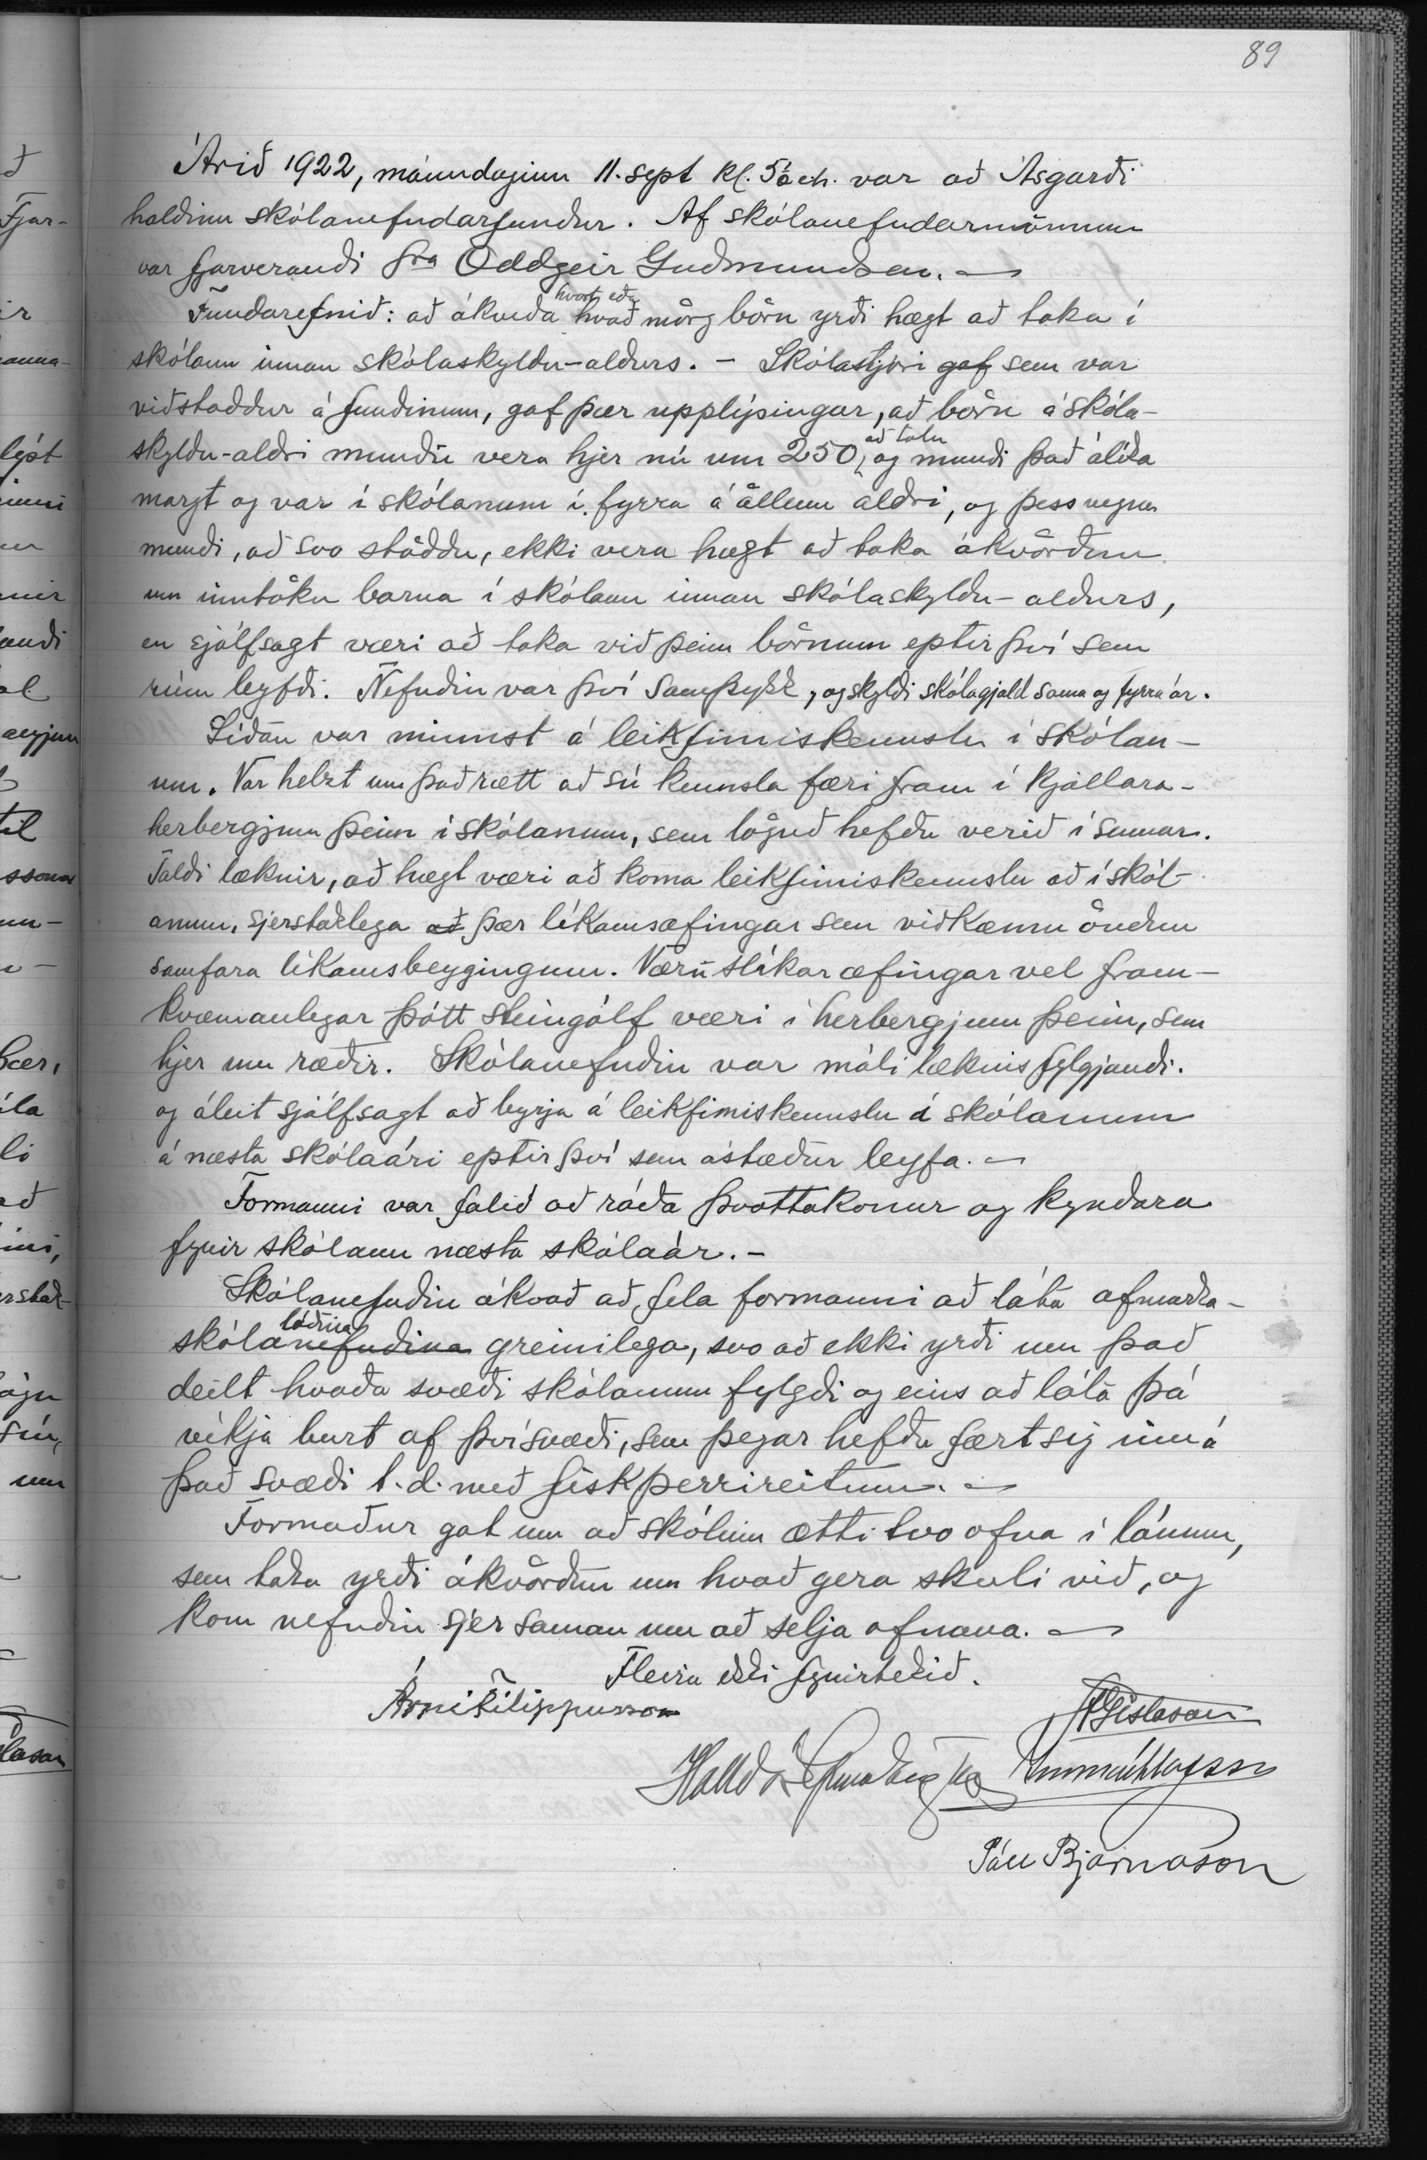 89
Árið 1922, mánudaginn 11. sept kl. 5 e.h. var að Ásgarði
haldinn skólanefndarfundur. Af skólanefndarmönnum
var fjarverandi sra Oddgeir Guðmundsen. —
Fundarefnið: að ákveða hvort eða hvað mörg börn yrði hægt að taka í
skólann innan skólaskyldu-aldurs. – Skólastjóri gaf sem var
viðstaddur á fundinum, gaf þær upplýsingar, að börn á skóla-
skyldu-aldri mundu vera hjer nú um 250 að tölu, og mundi það álíka
margt og var í skólanum í fyrra á öllum aldri, og þess vegna
mundi, að svo stöddu, ekki vera hægt að taka ákvörðun
um inntöku barna í skólann innan skólaskyldu-aldurs,
en sjálfsagt væri að taka við þeim börnum eptir því sem
rúm leyfði. Nefndin var því samþykk, og skyldi skólagjald sama og fyrra ár.
Síðan var minnst á leikfimiskennslu í skólan-
um. Var helzt um það rætt að sú kennsla færi fram í kjallara-
herbergjum þeim í skólanum, sem löguð hefðu verið í sumar.
Taldi læknir, að hægt væri að koma leikfimiskennslu að í skól-
anum, sjerstaklega að þær líkamsæfingar sem viðkæmu öndun
samfara líkamsbeygingum. Væru slíkar æfingar vel fram-
kvæmanlegar þótt steingólf væri í herbergjum þeim, sem
hjer um ræðir. Skólanefndin var máli læknis fylgjandi.
og áleit sjálfsagt að byrja á leikfimiskennslu í skólanum
á næsta skólaári eptir því sem ástæður leyfa. —
Formanni var falið að ráða þvottakonur og kyndara
fyrir skólann næsta skólaár. –
Skólanefndin ákvað að fela formanni að láta afmarka
skólanefndina lóðina greinilega, svo að ekki yrði um það
deilt hvaða svæði skólanum fylgdi og eins að láta þá
víkja burt af því svæði, sem þegar hefðu fært sig inn á
það svæði t.d. með fiskþerrireitum. —
Formaður gat um að skólinn ætti tvo ofna í lánum,
sem taka yrði ákvörðun um hvað gera skuli við, og
kom nefndin sjer saman um að selja ofnana. —
Fleira ekki fyrirtekið.
Árni Filippusson
Páll Bjarnason